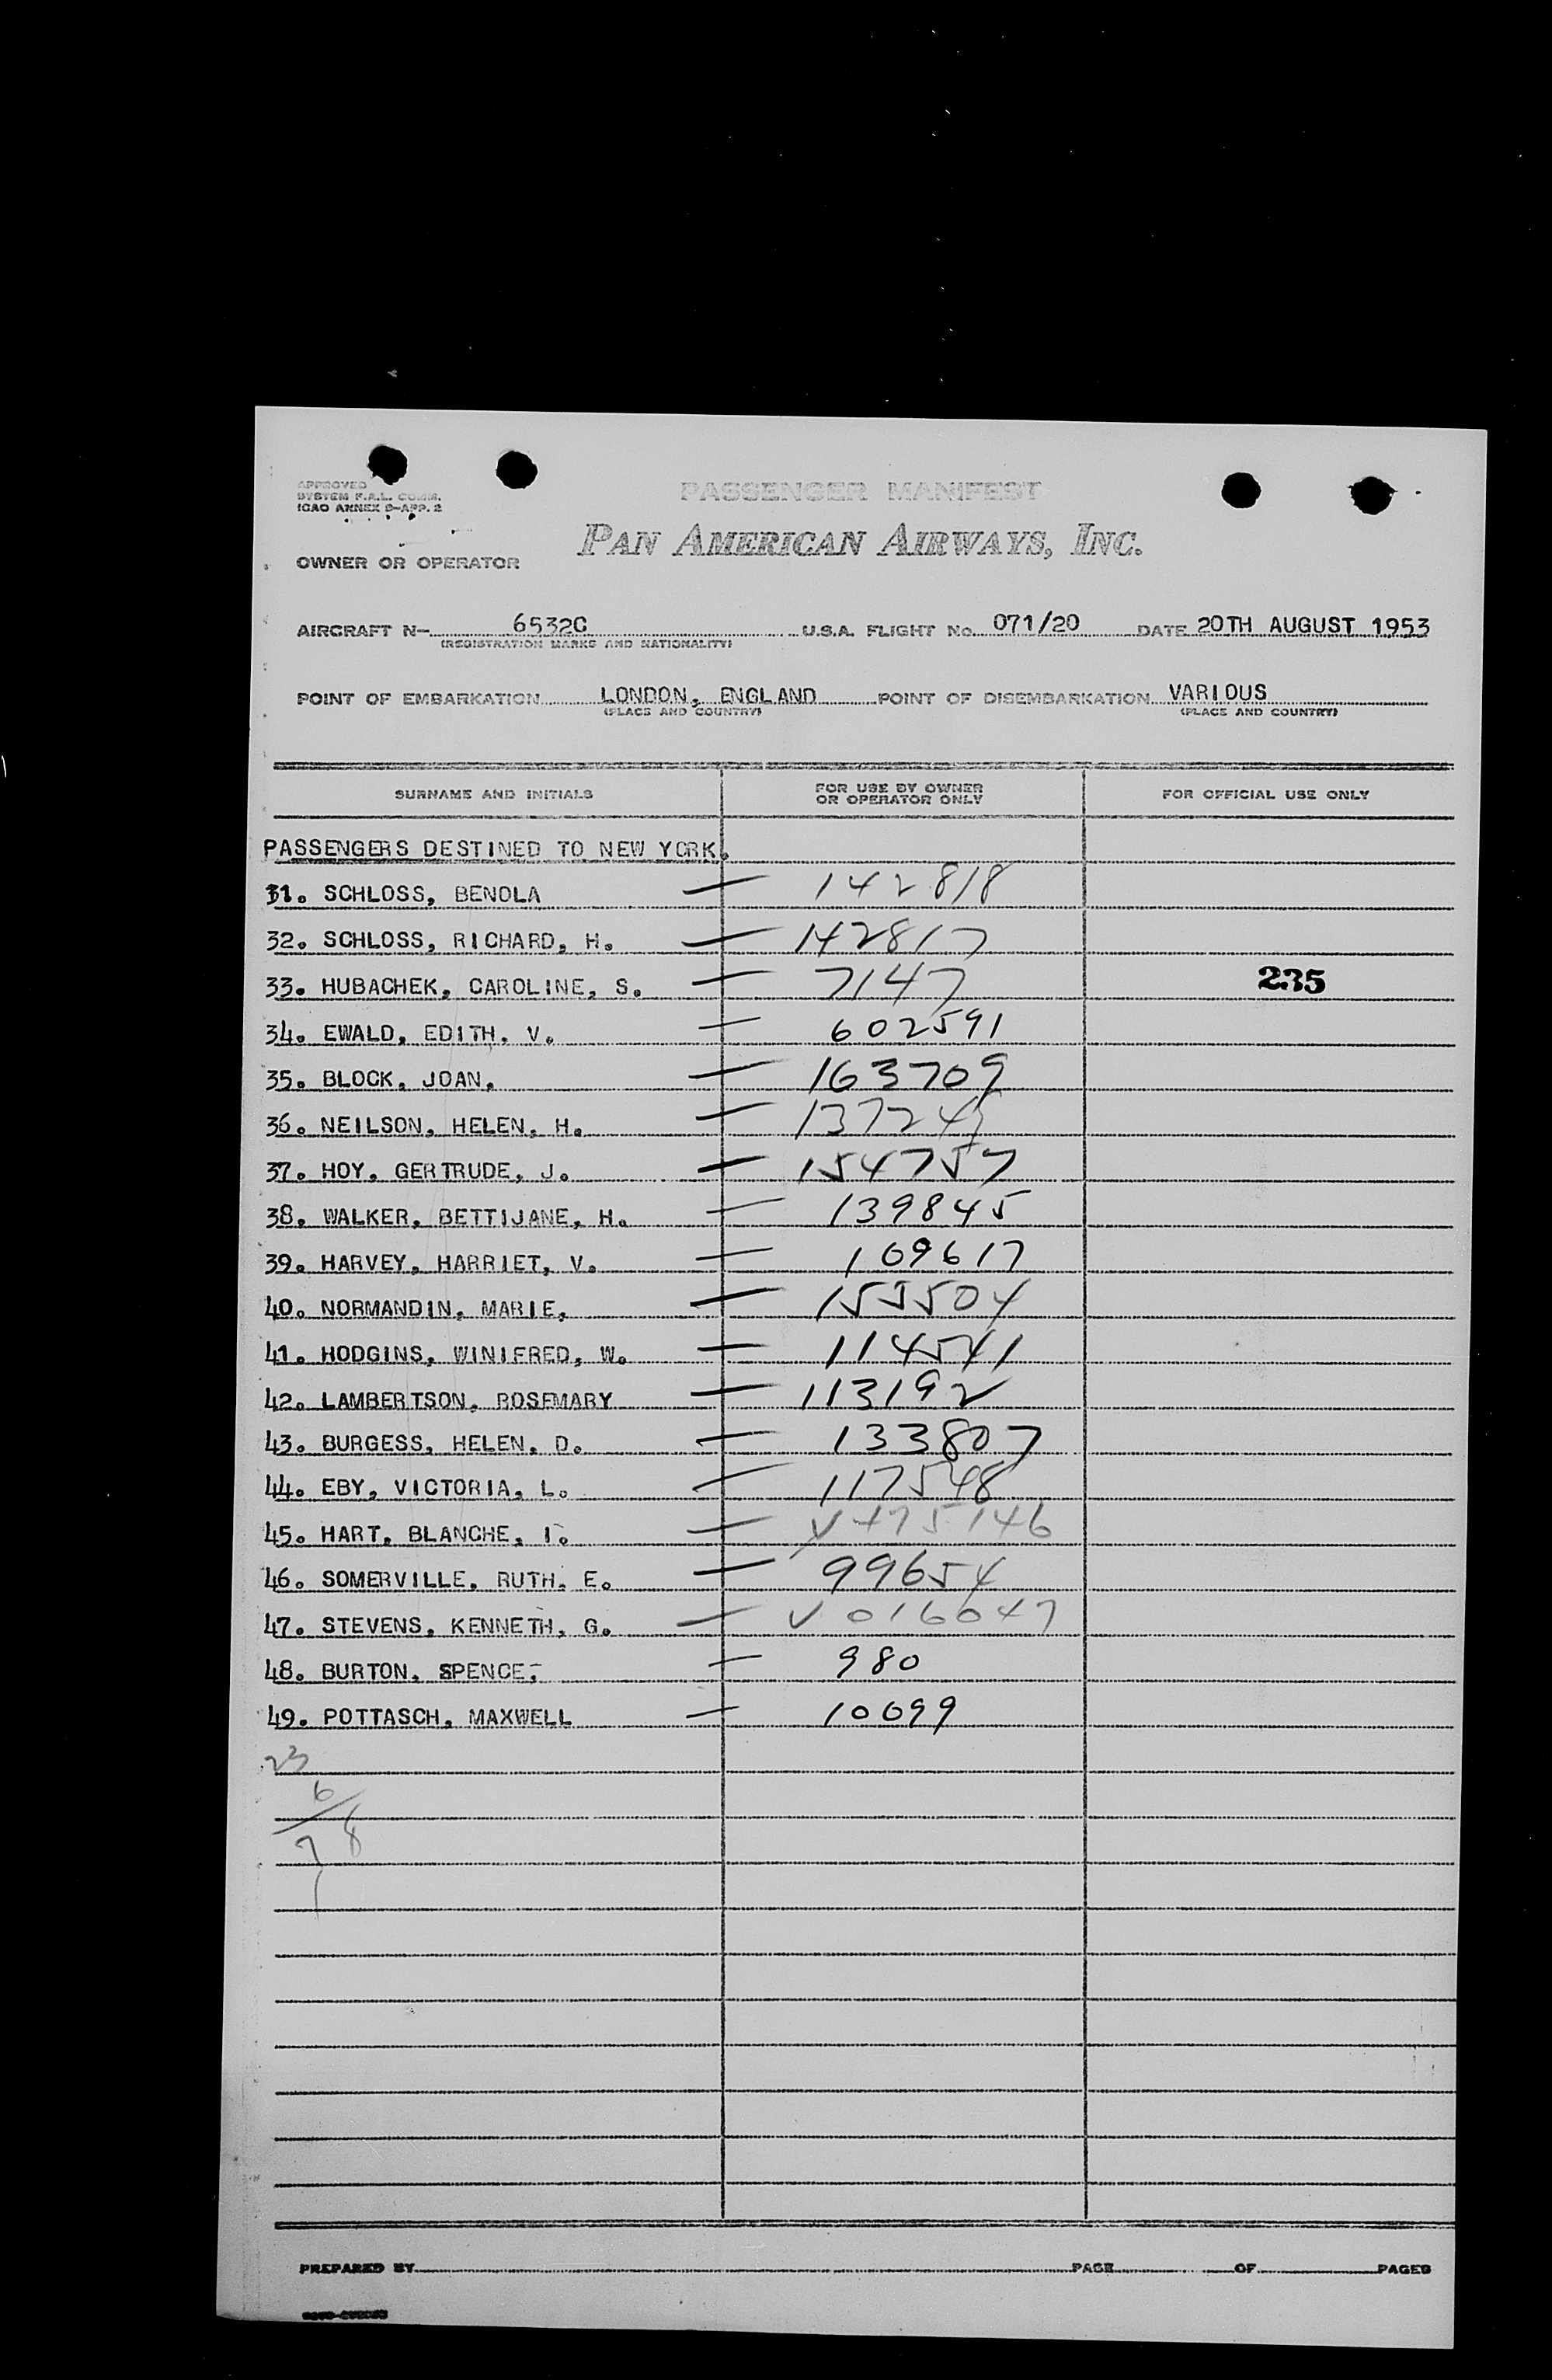 APPROVED
SYSTEM F.A.L. COMM.
ICAO ANNEX 9-APP. 2
PASSENGER MANIFEST
PAN AMERICAN AIRWAYS, INC.
OWNER OR OPERATOR
AIRCRAFT N- 6532C U.S.A. FLIGHT No. 071/20 DATE 20TH AUGUST 1953
(REGISTRATION MARKS AND NATIONALITY)
POINT OF EMBARKATION LONDON, ENGLAND POINT OF DISEMBARKATION VARIOUS
(PLACE AND COUNTRY) (PLACE AND COUNTRY)
SURNAME AND INITIALS FOR USE BY OWNER OR OPERATOR ONLY FOR OFFICIAL USE ONLY
PASSENGERS DESTINED TO NEW YORK.
31. SCHLOSS, BENOLA — 142818
32. SCHLOSS, RICHARD, H. — 142817
33. HUBACHEK, CAROLINE, S. — 7147 235
34. EWALD, EDITH, V. — 602591
35. BLOCK, JOAN, — 163709
36. NEILSON, HELEN, H. — 137245
37. HOY, GERTRUDE, J. — 154757
38. WALKER, BETTIJANE, H. — 139845
39. HARVEY, HARRIET, V. — 109617
40. NORMANDIN, MARIE, — 155504
41. HODGINS, WINIFRED, W. — 114541
42. LAMBERTSON, ROSEMARY — 113192
43. BURGESS, HELEN, D. — 133807
44. EBY, VICTORIA, L. — 117548
45. HART, BLANCHE, I. —
46. SOMERVILLE, RUTH, E. — 99654
47. STEVENS, KENNETH, G. — V 016047
48. BURTON, SPENCE, — 980
49. POTTASCH, MAXWELL — 10699
23
6
7 8
PREPARED BY PAGE OF PAGES